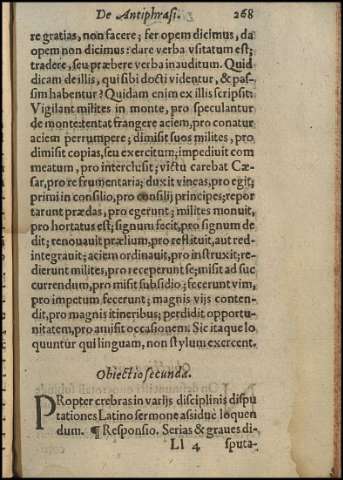 De Antiphrasi. 268
re gratias, non facere; fer opem dicimus, da
opem non dicimus: dare verba vsitatum est;
tradere, seu præbere verba inauditum. Quid
dicam de illis, qui sibi docti videntur, & pas-
sim habentur? Quidam enim ex illis scripsit:
Vigilant milites in monte, pro speculantur
de monte: tentat frangere aciem, pro conatur
aciem perrumpere; dimisit suos milites, pro
dimisit copias, seu exercitum; impediuit com
meatum, pro interclusit; victu carebat Cæ-
sar, pro re frumentaria; duxit vineas, pro egit;
primi in consilio, pro consilij principes; repor
tarunt prædas, pro egerunt; milites monuit,
pro hortatus est; signum fecit, pro signum de
dit; renouauit prælium, pro restituit, aut red-
integrauit; aciem ordinauit, pro instruxit; re-
dierunt milites, pro receperunt se; misit ad suc
currendum, pro misit subsidio; fecerunt vim,
pro impetum fecerunt; magnis vijs conten-
dit, pro magnis itineribus; perdidit opportu-
nitatem, pro amisit occasionem. Sic itaque lo
quuntur qui linguam, non stylum exercent.
Obiectio secunda.
PRopter crebras in varijs disciplinis dispu
tationes Latino sermone assiduè loquen
dum. ¶ Responsio. Serias & graues di-
Ll 4 sputa-